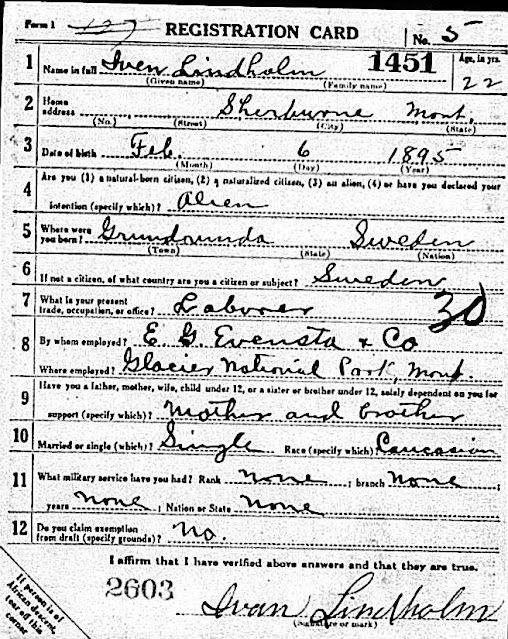 Form 1 REGISTRATION CARD No. 5
1 Name in full Iven Lindholm 1451 Age, in yrs. 22
(Given name) (Family name)
2 Home address Sherburne Mont.
(No.) (Street) (City) (State)
3 Date of birth Feb. 6 1895
(Month) (Day) (Year)
4 Are you (1) a natural-born citizen, (2) a naturalized citizen, (3) an alien, (4) or have you declared your
intention (specify which)? Alien
5 Where were you born? Grundsunda Sweden
(Town) (State) (Nation)
6 If not a citizen, of what country are you a citizen or subject? Sweden
7 What is your present trade, occupation, or office? Laborer 30
8 By whom employed? E. G. Evensta & Co
Where employed? Glacier National Park, Mont.
9 Have you a father, mother, wife, child under 12, or a sister or brother under 12, solely dependent on you for
support (specify which)? Mother and brother
10 Married or single (which)? Single Race (specify which)? Caucasian
11 What military service have you had? Rank none ; branch none ;
years none ; Nation or State none
12 Do you claim exemption from draft (specify grounds)? No.
I affirm that I have verified above answers and that they are true.
2603
Ivan Lindholm
(Signature or mark)
If person is of
African descent,
tear off this
corner